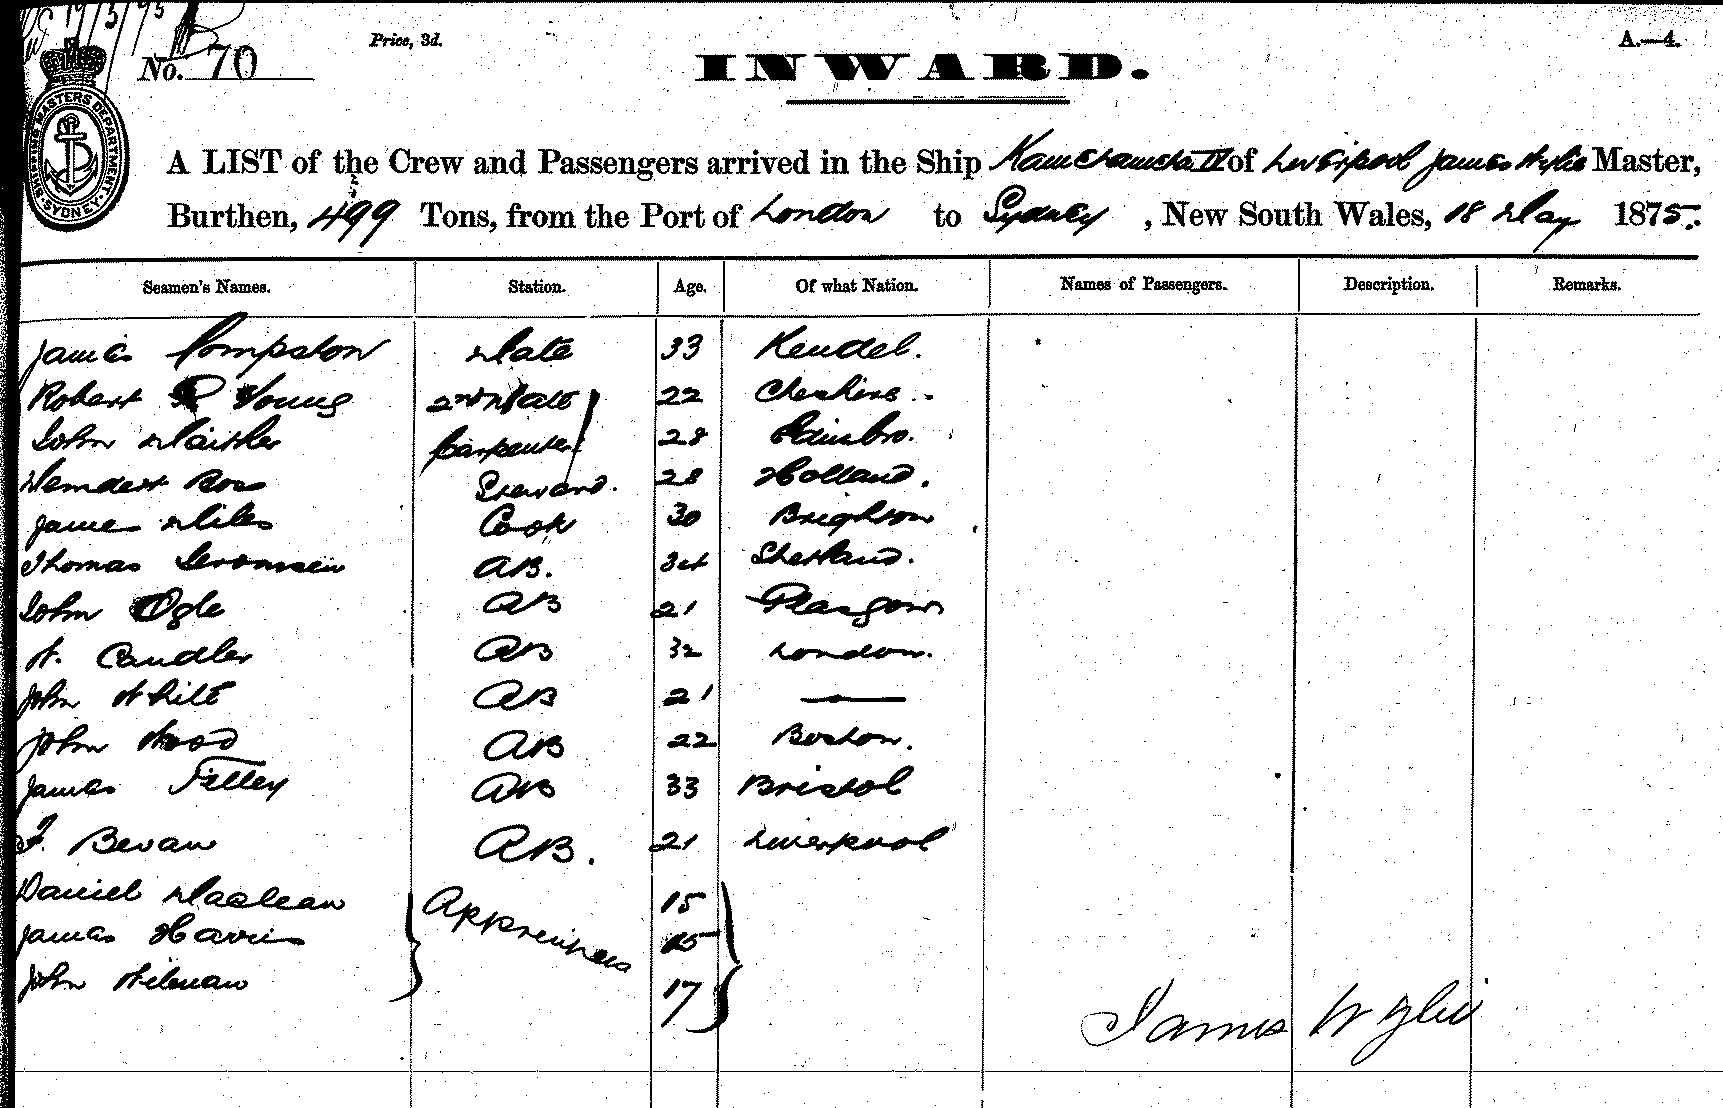 19/5/75
Price, 3d.
A.—4.
No. 70
INWARD.
SHIPPING MASTERS DEPARTMENT SYDNEY
A LIST of the Crew and Passengers arrived in the Ship Kamehameha IV of Liverpool James Wylie Master,
Burthen, 499 Tons, from the Port of London to Sydney, New South Wales, 18 May 1875.
Seamen's Names. Station. Age. Of what Nation. Names of Passengers. Description. Remarks.
James Compston Mate 33 Kendel.
Robert Young 2nd Mate 22 Cheshire
John Carpenter 28 Edinbro.
Steward. 28 Holland.
James Miles Cook 30 Brighton
Thomas AB. Shetland.
John Ogle AB 21 Glasgow
W. Candler AB 32 London.
John White AB 21 —
John Wood AB 22 Boston.
James Tilley AB 33 Bristol
F. Bevan AB. 21 Liverpool
Daniel Maclean Apprentices 15
James Harris 15
John 17
James Wylie